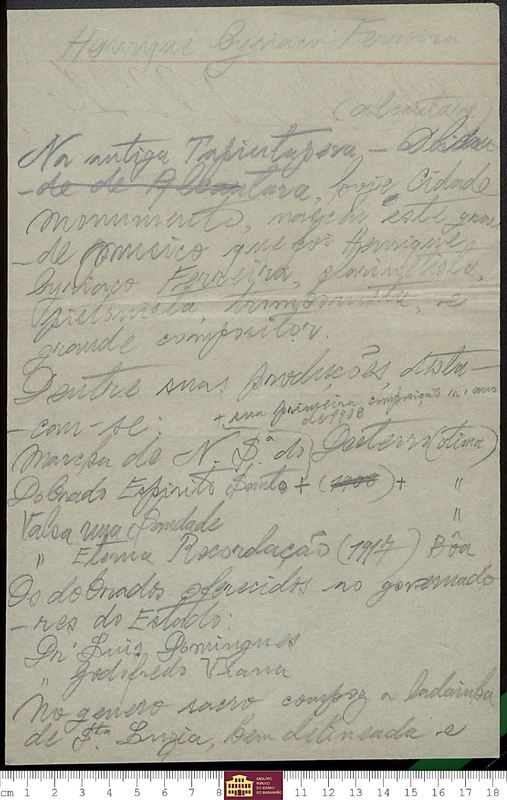 Henrique Cyriaco Ferreira
(alcantara)
Na antiga Tapuitapera, -
- de de Alcantara, hoje, Cidade
monumento, nasceu este gran
- de musico que foi Henrique
Cyriaco Ferreira, clarinetista,
pistonista, trombonista, e
grande compositor.
Dentre suas produções desta-
+ sua primeira composição n, ano
de 1908
- cam - se:
Marcha de N. Sª do Desterro (otima)
Dobrado Espirito Santo + (1908) + "
Valsa uma Saudade "
" Eterna Recordação (1917) Bôa
Os dobrados oferecidos ao governado
- res do Estado:
Dr. Luis Domingues
" Godofredo Viana
No genero sacro compoz a ladainha
de Sta. Luzia, bem delineada e
cm 1 2 3 4 5 6 7 8 11 12 13 14 15 16 17 18
ARQUIVO
PÚBLICO
DO ESTADO
DO MARANHÃO